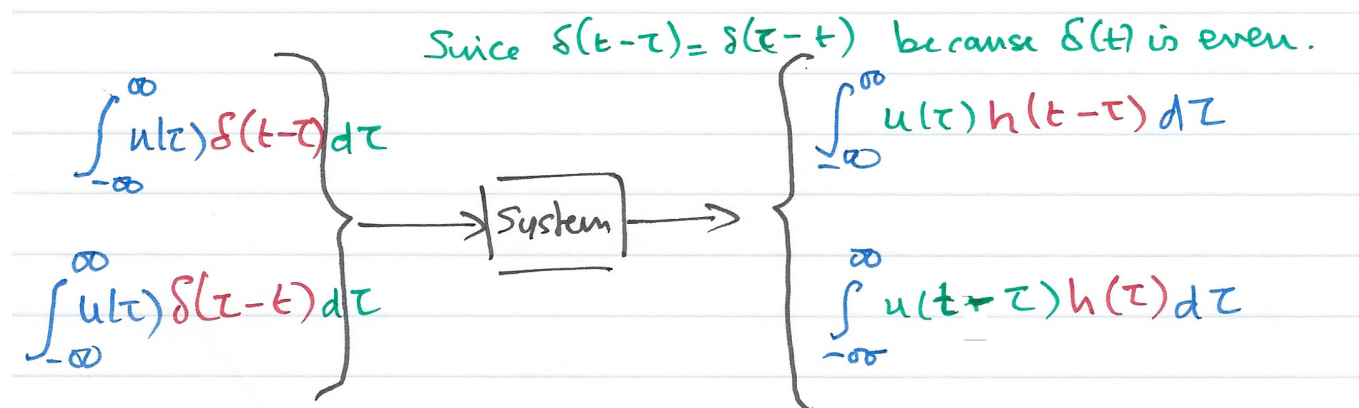 Since δ(t-τ) = δ(τ-t) because δ(t) is even.
∫_{-∞}^{∞} u(τ) δ(t-τ) dτ
∫_{-∞}^{∞} u(τ) h(t-τ) dτ
System
∫_{-∞}^{∞} u(τ) δ(τ-t) dτ
∫_{-∞}^{∞} u(t-τ) h(τ) dτ